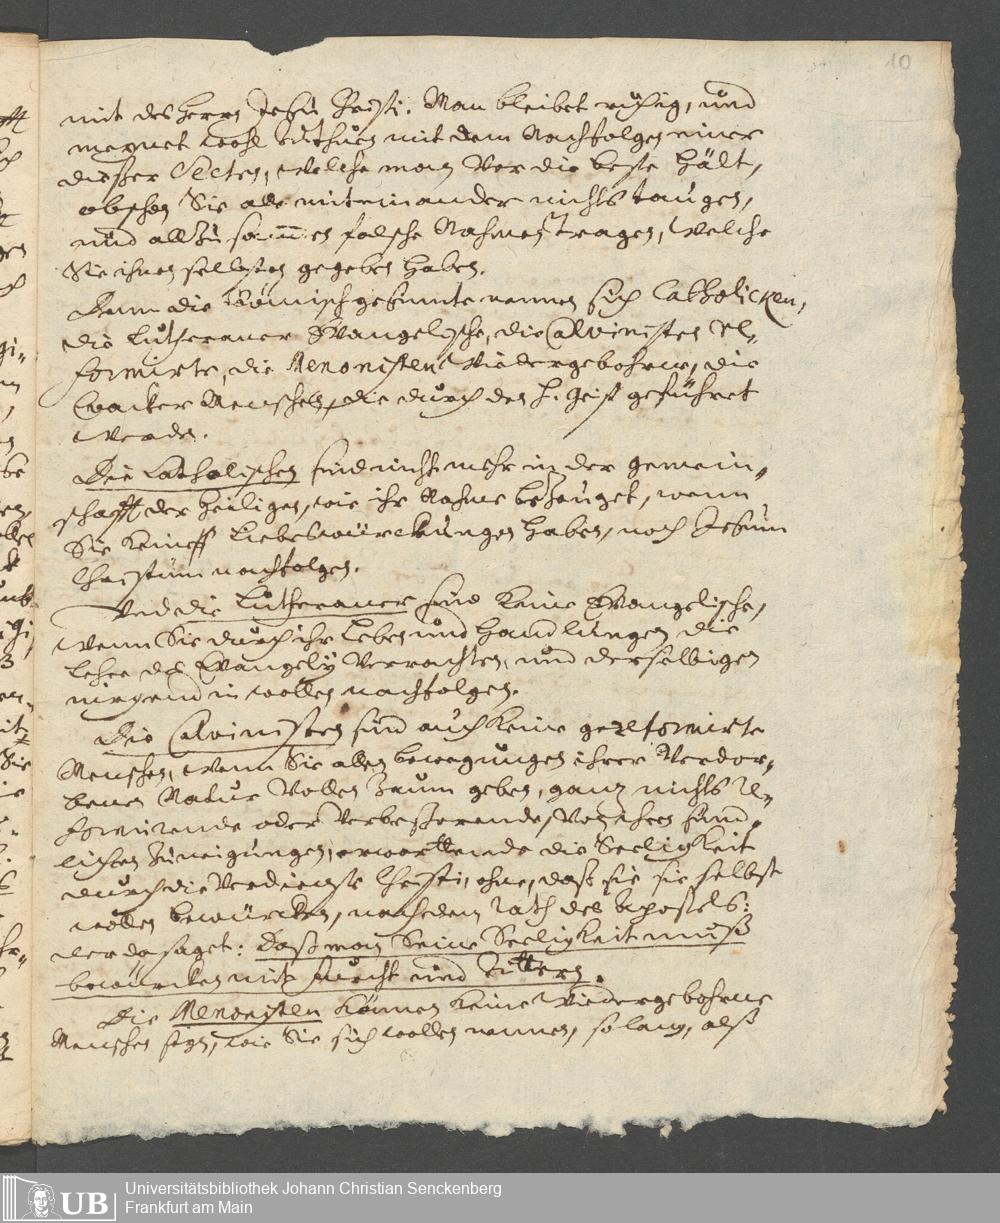 10
mit des Herrn Jesu Christi. Man bleibet ruhig, und
meynet wohl zuthuen mit dem Nachfolgen einer
dießer Secten, welche man Vor die beste hält,
obschon Sie alle mit einander nichts taugen,
und allzusam̄en falsche Nahmen tragen, welche
Sie ihnen selbsten gegeben haben.
Dann die Römischgesinnte nennen sich Catholicken,
die Lutheraner Evangelische, die Calvinisten Re-
formirte, die Menonisten Wiedergebohrne, die
Quacker Menschen, die durch den H. Geist geführet
werden.
Die Catholischen sind nicht mehr in der gemein-
schafft der Heiligen, wie ihr Nahme bezeuget, wenn
Sie keine Liebeswürckungen haben, noch Jesum
Christum nachfolgen.
Und die Lutheraner sind keine Evangelische,
wenn Sie durch ihr Leben und Handlungen die
Lehre des Evangelÿ Verachten, und derselbigen
nirgend in wollen nachfolgen.
Die Calvinisten sind auch keine gereformirte
Menschen, wenn Sie allen bewegungen ihrer Verdor-
benen Natur Vollen Zaum geben, ganz nichts Re-
formirende oder Verbeßerende, Von ihren sünd-
lichen Zuneigungen, erwarttende die Seeligkeit
durch die Verdienste Christi, ohne, daß sie sie selbst
wollen bewürcken, nach dem Rath des Apostels:
der da saget: Daß man Seine Seeligkeit muß
bewürcken mit furcht und Zittern.
Die Menonisten können keine Wiedergebohrne
Menschen seyn, wie Sie sich wollen nennen, so lang, alß
UB Universitätsbibliothek Johann Christian Senckenberg
Frankfurt am Main